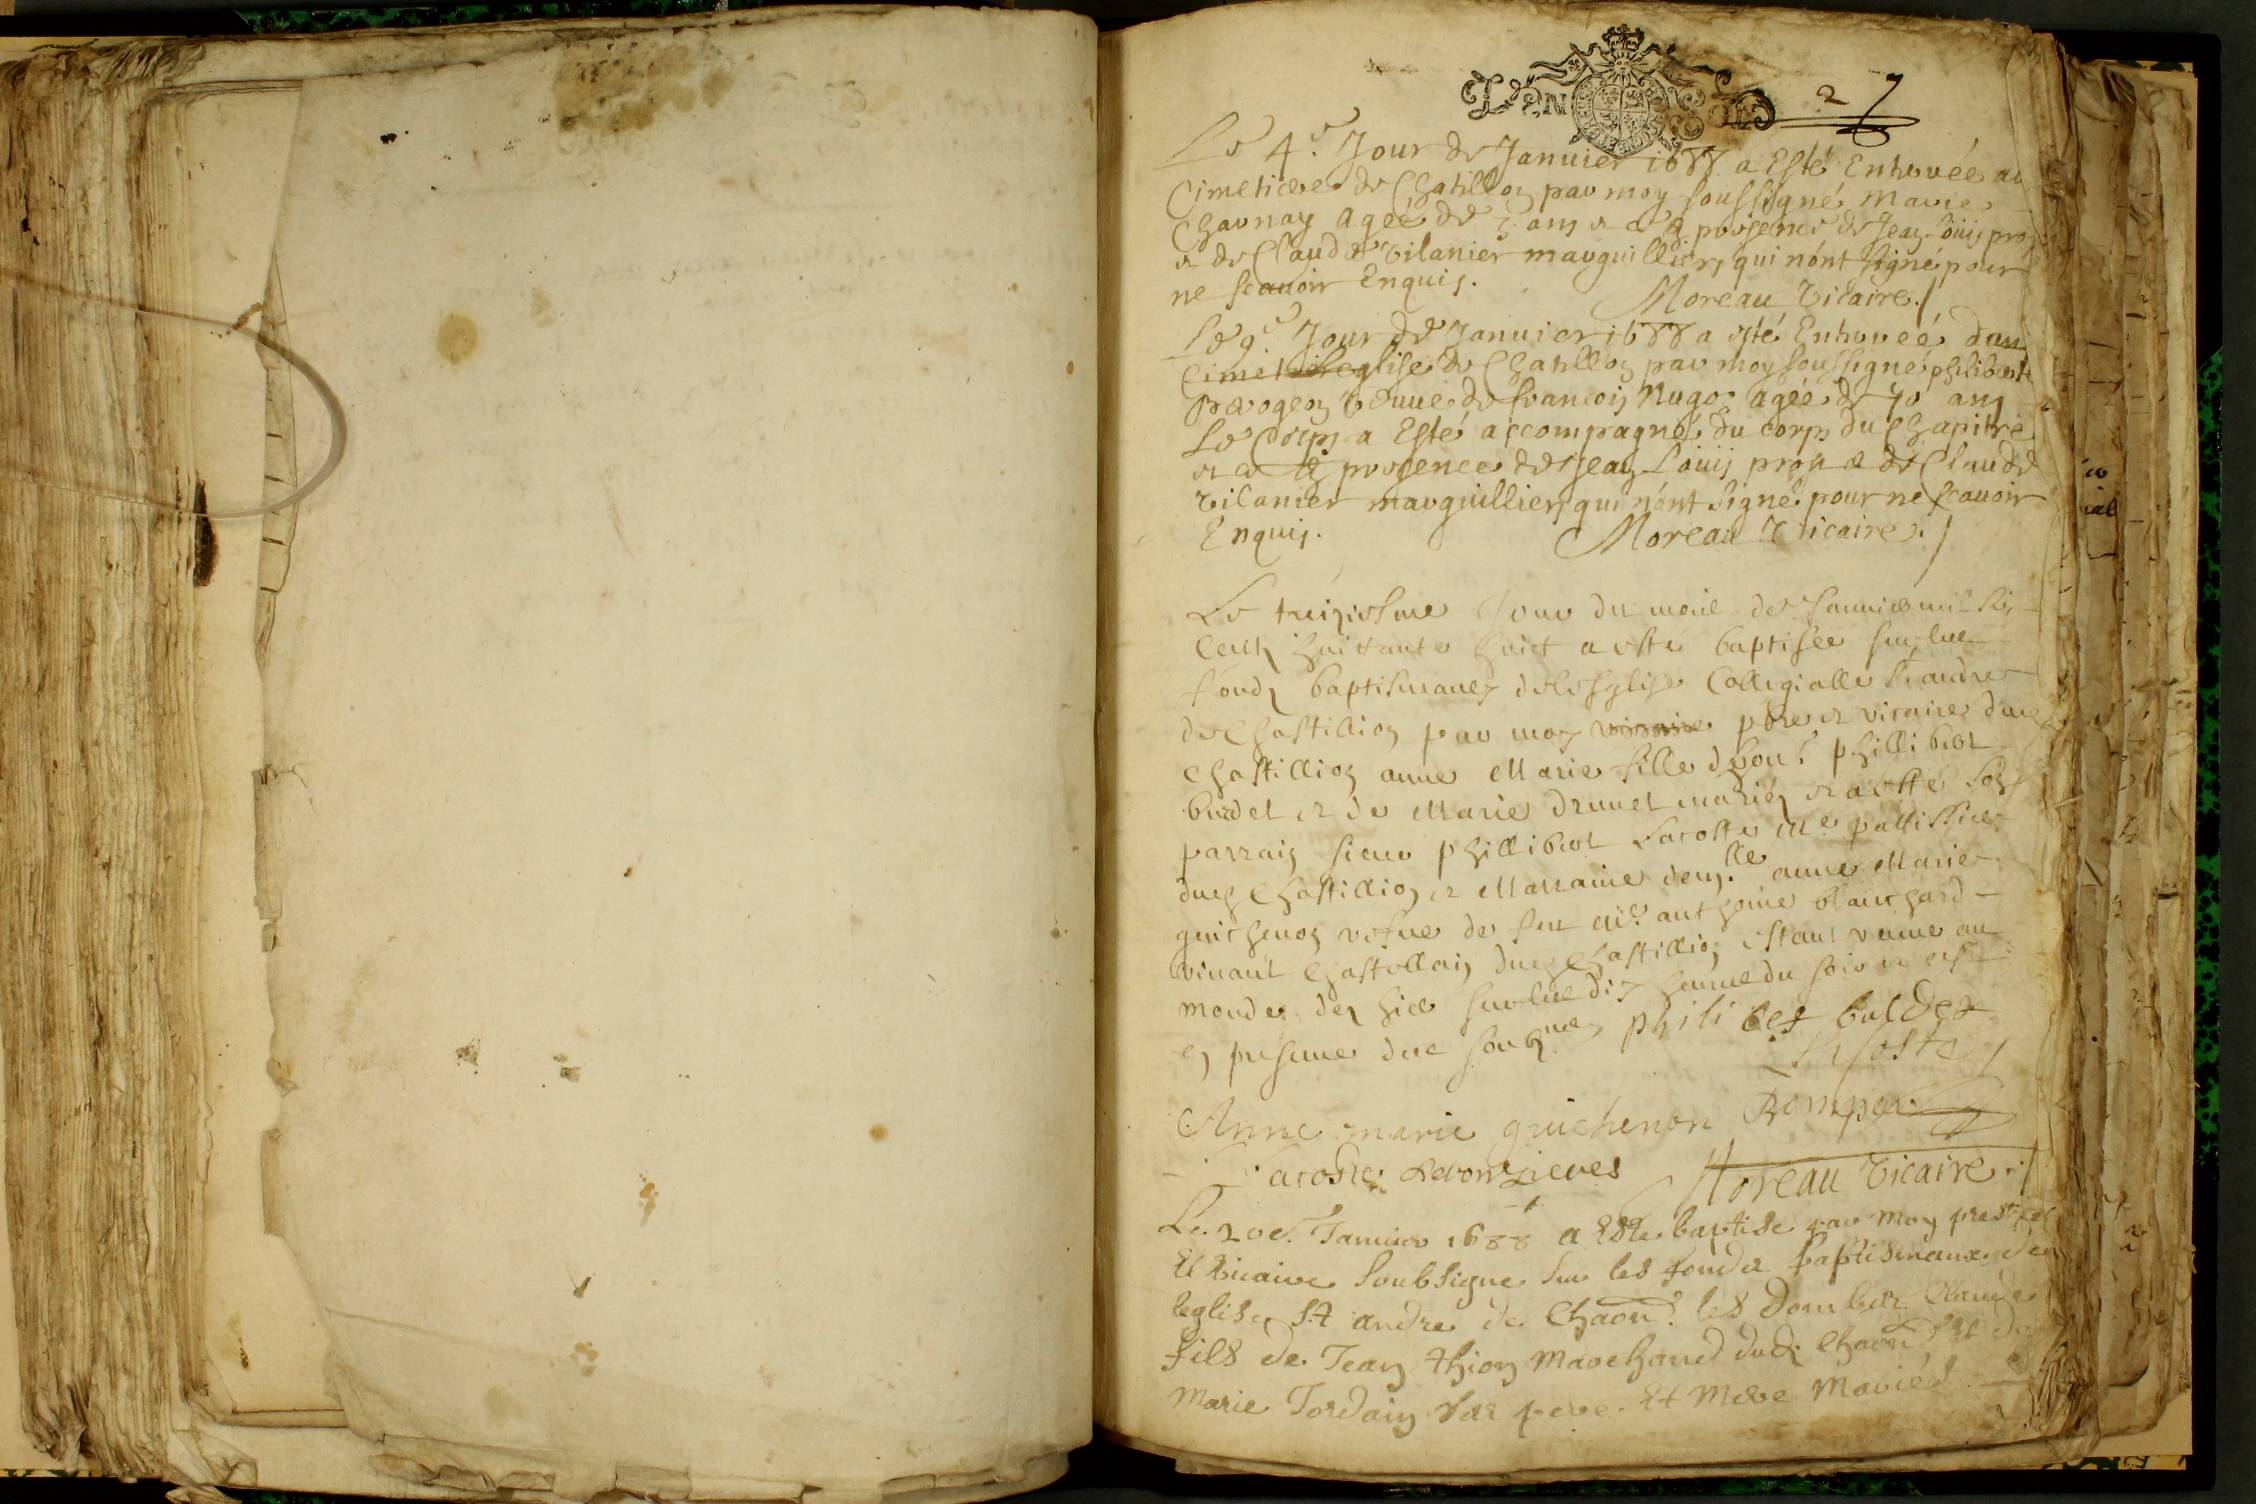 27
Le 4e. Jour de Januier 1688 a Esté Enterrée au
Cimetiere de Chatillon par moy soussigné Marie
Charnay agée de 3 ans & ce en presence de Jean Louis
& de Claude Vilanier marguilliers qui n'ont signé pour
ne scauoir Enquis. Moreau Vicaire./
Le 9e. Jour de Januier 1688 a esté Enterreé dans
l'eglise de Chatillon par moy soussigné philiberte
veuue de francois Nugo agée de 70 ans
Le Corps a Esté accompagné du corps du Chapitre
& ce en presence de Jean Louis & de Claude
Vilanier marguilliers qui n'ont signé pour ne scauoir
Enquis. Moreau Vicaire./
Le treiziesme Jour du mois de Januier mil six
Cents huictante huict a esté baptisée sur les
fonds baptismaux de l'esglise Collegialle St andre
de Chastillion par moy vicaire pbre et vicaire dud
Chastillion anne Marie fille d'hon. phillibert
et de Marie mariés et a esté son
parrain sieur phillibert Lacoste Me pattissier
dud Chastillion et Marraine dem.lle anne Marie
guichenon vefue de feu Me. anthoine blanchard
viuant Chastellain dud Chastillion estant venue au
monde dez hier sur les dix heures du soir et
en presence des soubz.nes philibes buldet
Lacoste
Anne marie guichenon Rompor
Lacoste Moreau Vicaire./
Le 20e. Januier 1688 a Este baptise par moy prestre
Et Vicaire soubsigne sur les fonds baptismaux de
leglise St andré de Chaon. les Dombes Claude
fils de Jean thion Marchand dud. Chaon Et de
Marie Jordain ses pere Et Mere Mariés